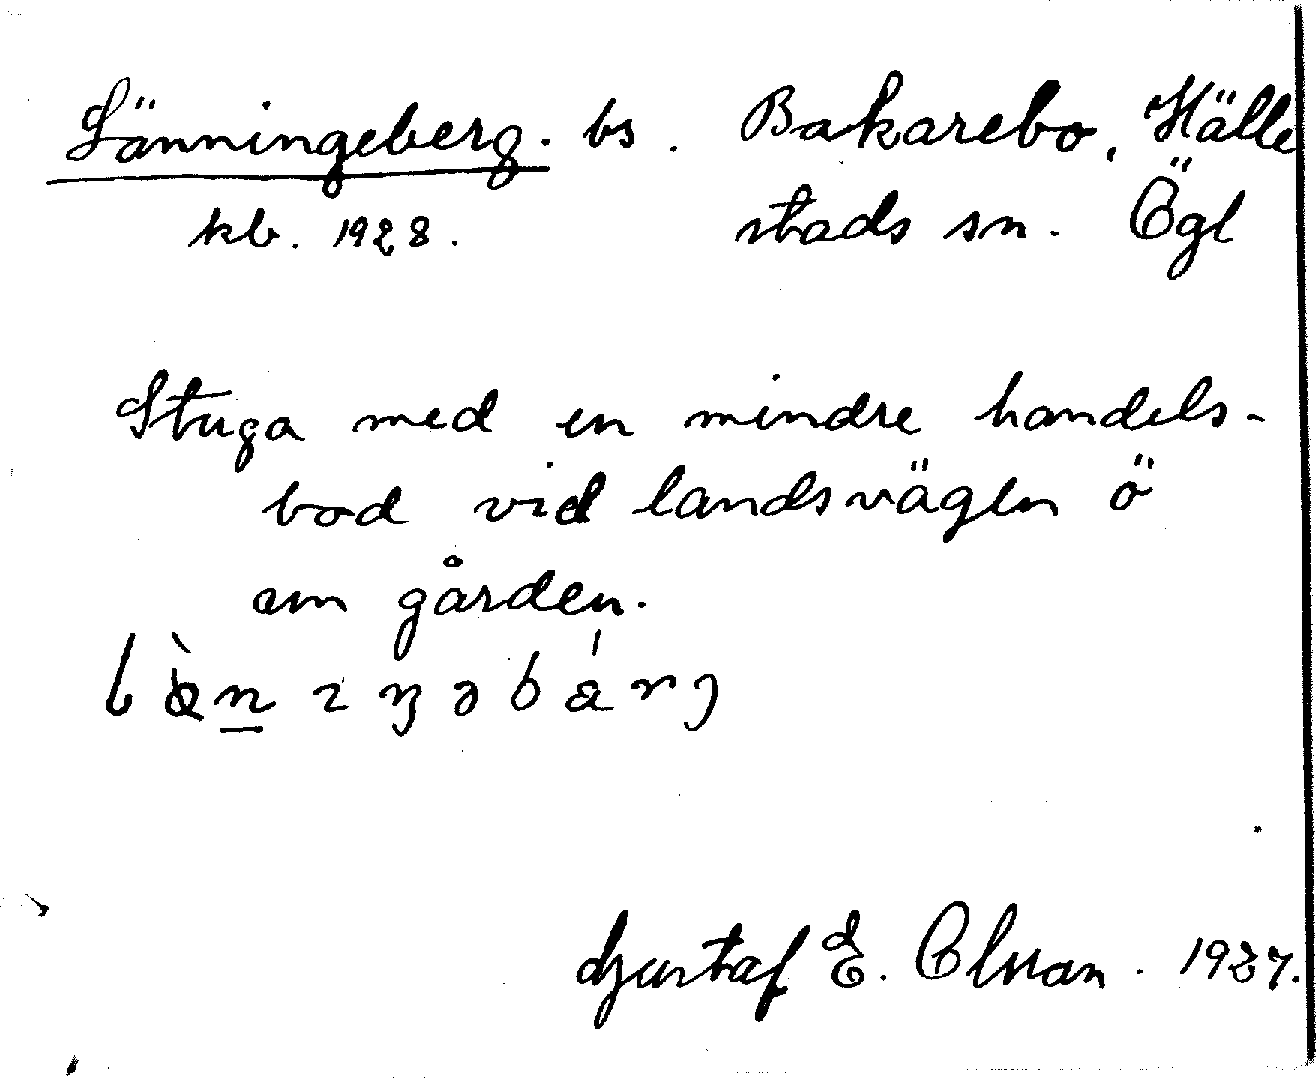 Länningeberg. bs. Bakarebo, Hälle
kb. 1928. stads sn. Ögl
Stuga med en mindre handels-
bod vid landsvägen ö
om gården.
Gustaf E. Olsson. 1937.